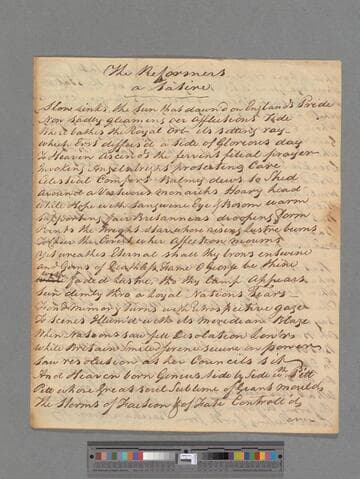 The Reformers
a Satire
Slow sinks the Sun that dawn'd on England's Pride
Now sadly gleaming oer Afflictions Tide
There bathes the Royal Orb its setting ray
Which Erst diffus'd a tide of Glorious day
To Heaven ascends the fervent filial prayer
Invoking Angels bright protecting Care
Celestial Comforts Balmy dews to Shed
Around a Virtuous monarchs Hoary head
While Hope with Sanguine Eye & Bosom warm
Supporting fair Britannias drooping form
Points the bright Star whose rising Lustre burns
To Chear the Covert where Affection mourns
Yet wreaths Eternal shall thy brows entwine
And Gems of Deathless Fame O George be thine
faded Lustre, tho thy Lamp Appears
Sun dimly thro a Loyal Nations Tears
Fond memory Turns with retrospective gaze
To Scenes Illum'd with its meridian Blaze
When Nations saw fell Desolation lower
While Britain smil'd serene secure in power
Saw resolution at her Councils sit
And Heaven born Genius side by Side with Pitt
Pitt whose Great soul Sublime of Giant mould
The Storms of Faction & of Fate Controll'd